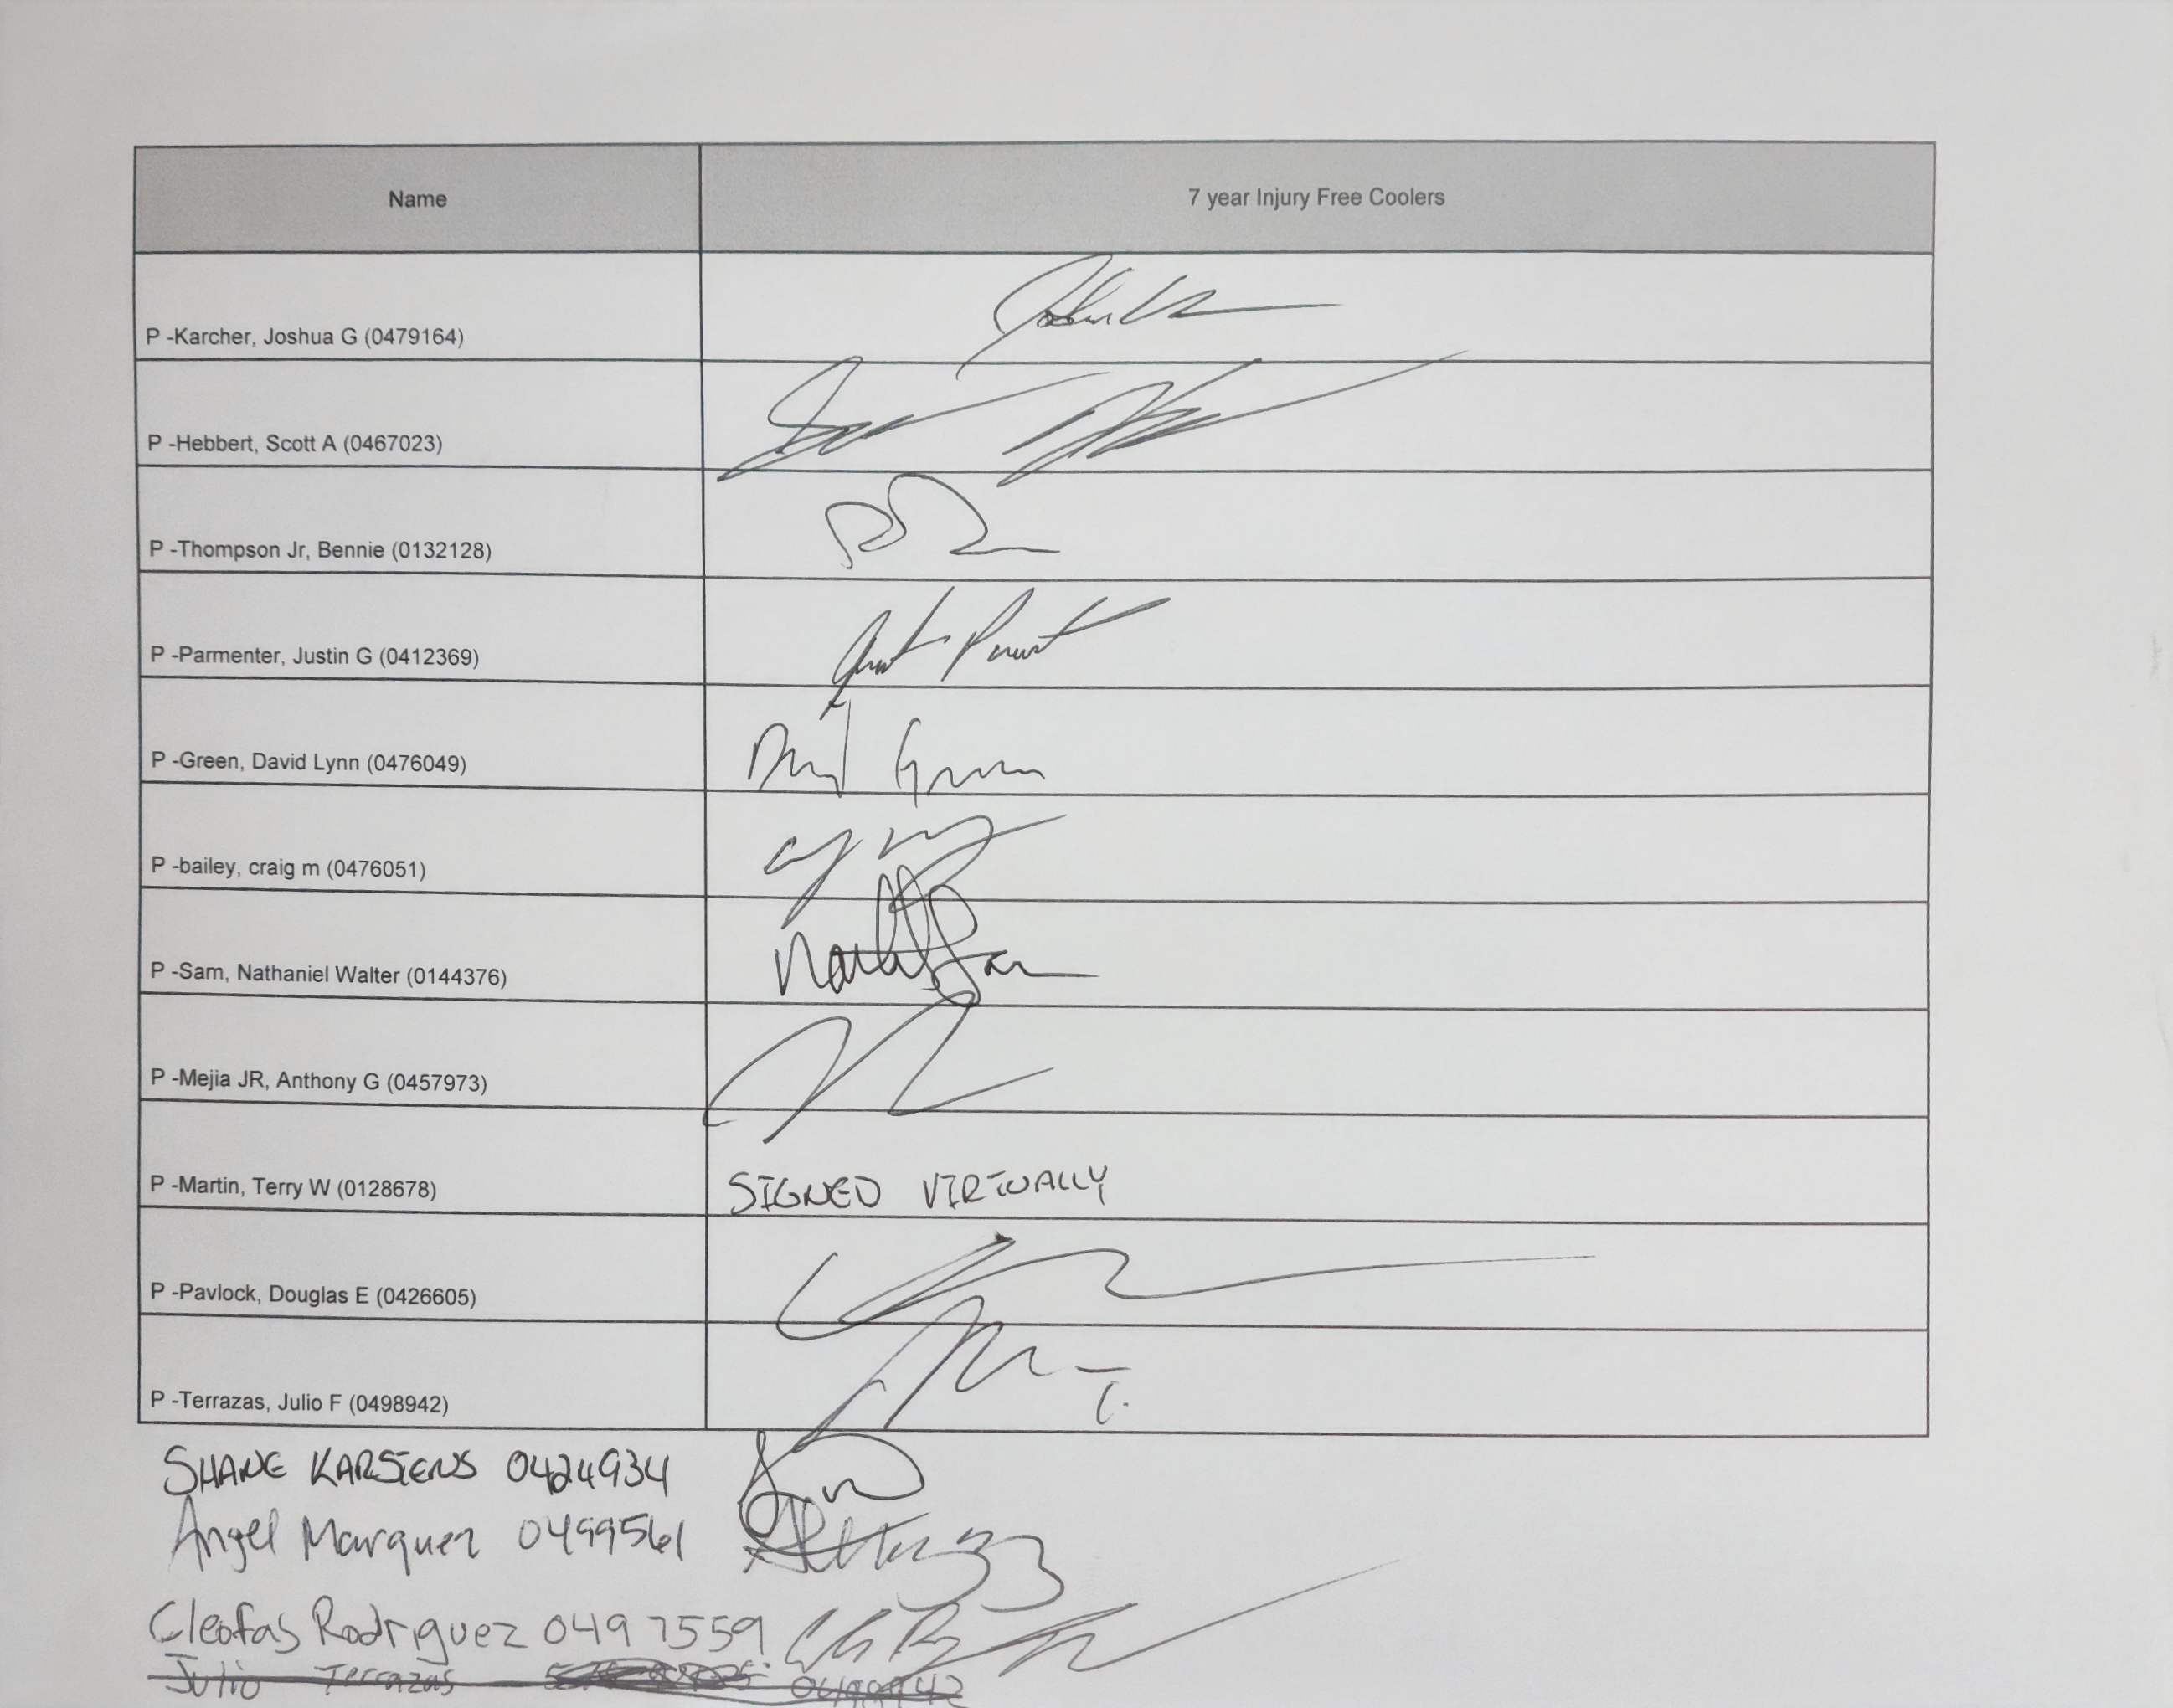 Name 7 year Injury Free Coolers
P -Karcher, Joshua G (0479164)
P -Hebbert, Scott A (0467023)
P -Thompson Jr, Bennie (0132128)
P -Parmenter, Justin G (0412369)
P -Green, David Lynn (0476049)
P -bailey, craig m (0476051)
P -Sam, Nathaniel Walter (0144376)
P -Mejia JR, Anthony G (0457973)
P -Martin, Terry W (0128678) SIGNED VIRTUALLY
P -Pavlock, Douglas E (0426605)
P -Terrazas, Julio F (0498942)
SHANE KARSTENS 0424934
Angel Marquez 0499561
Cleofas Rodriguez 0497559
Julio Terrazas 0498942